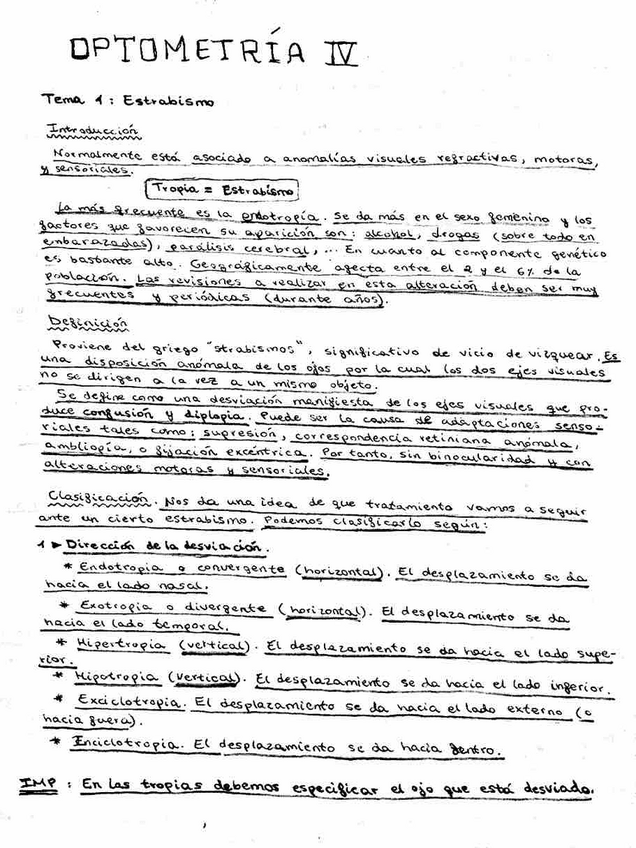 OPTOMETRÍA IV
Tema 1: Estrabismo
Introducción
Normalmente está asociado a anomalías visuales refractivas, motoras,
y sensoriales.
Tropia = Estrabismo
La más frecuente es la endotropía. Se da más en el sexo femenino y los
factores que favorecen su aparición son: alcohol, drogas (sobre todo en
enbarazadas), parálisis cerebral,... En cuanto al componente genético
es bastante alto. Geográficamente afecta entre el 2 y el 6% de la
población. Las revisiones a realizar en esta alteración deben ser muy
frecuentes y periódicas (durante años).
Definición
Proviene del griego "strabismos", significativo de vicio de vizquear. Es
una disposición anómala de los ojos por la cual los dos ejes visuales
no se dirigen a la vez a un mismo objeto.
Se define como una desviación manifiesta de los ejes visuales que pro-
duce confusión y diplopia. Puede ser la causa de adaptaciones senso-
riales tales como: supresión, correspondencia retiniana anómala,
ambliopía, o fijación excéntrica. Por tanto, sin binocularidad y con
alteraciones motoras y sensoriales.
Clasificación. Nos da una idea de que tratamiento vamos a seguir
ante un cierto estrabismo. Podemos clasificarlo según:
1 ► Dirección de la desviación.
* Endotropia o convergente (horizontal). El desplazamiento se da
hacia el lado nasal.
* Exotropia o divergente (horizontal). El desplazamiento se da
hacia el lado temporal.
* Hipertropia (vertical). El desplazamiento se da hacia el lado supe-
rior.
* Hipotropia (vertical). El desplazamiento se da hacia el lado inferior.
* Exciclotropia. El desplazamiento se da hacia el lado externo (o
hacia fuera).
* Enciclotropia. El desplazamiento se da hacia dentro.
IMP : En las tropias debemos especificar el ojo que está desviado.